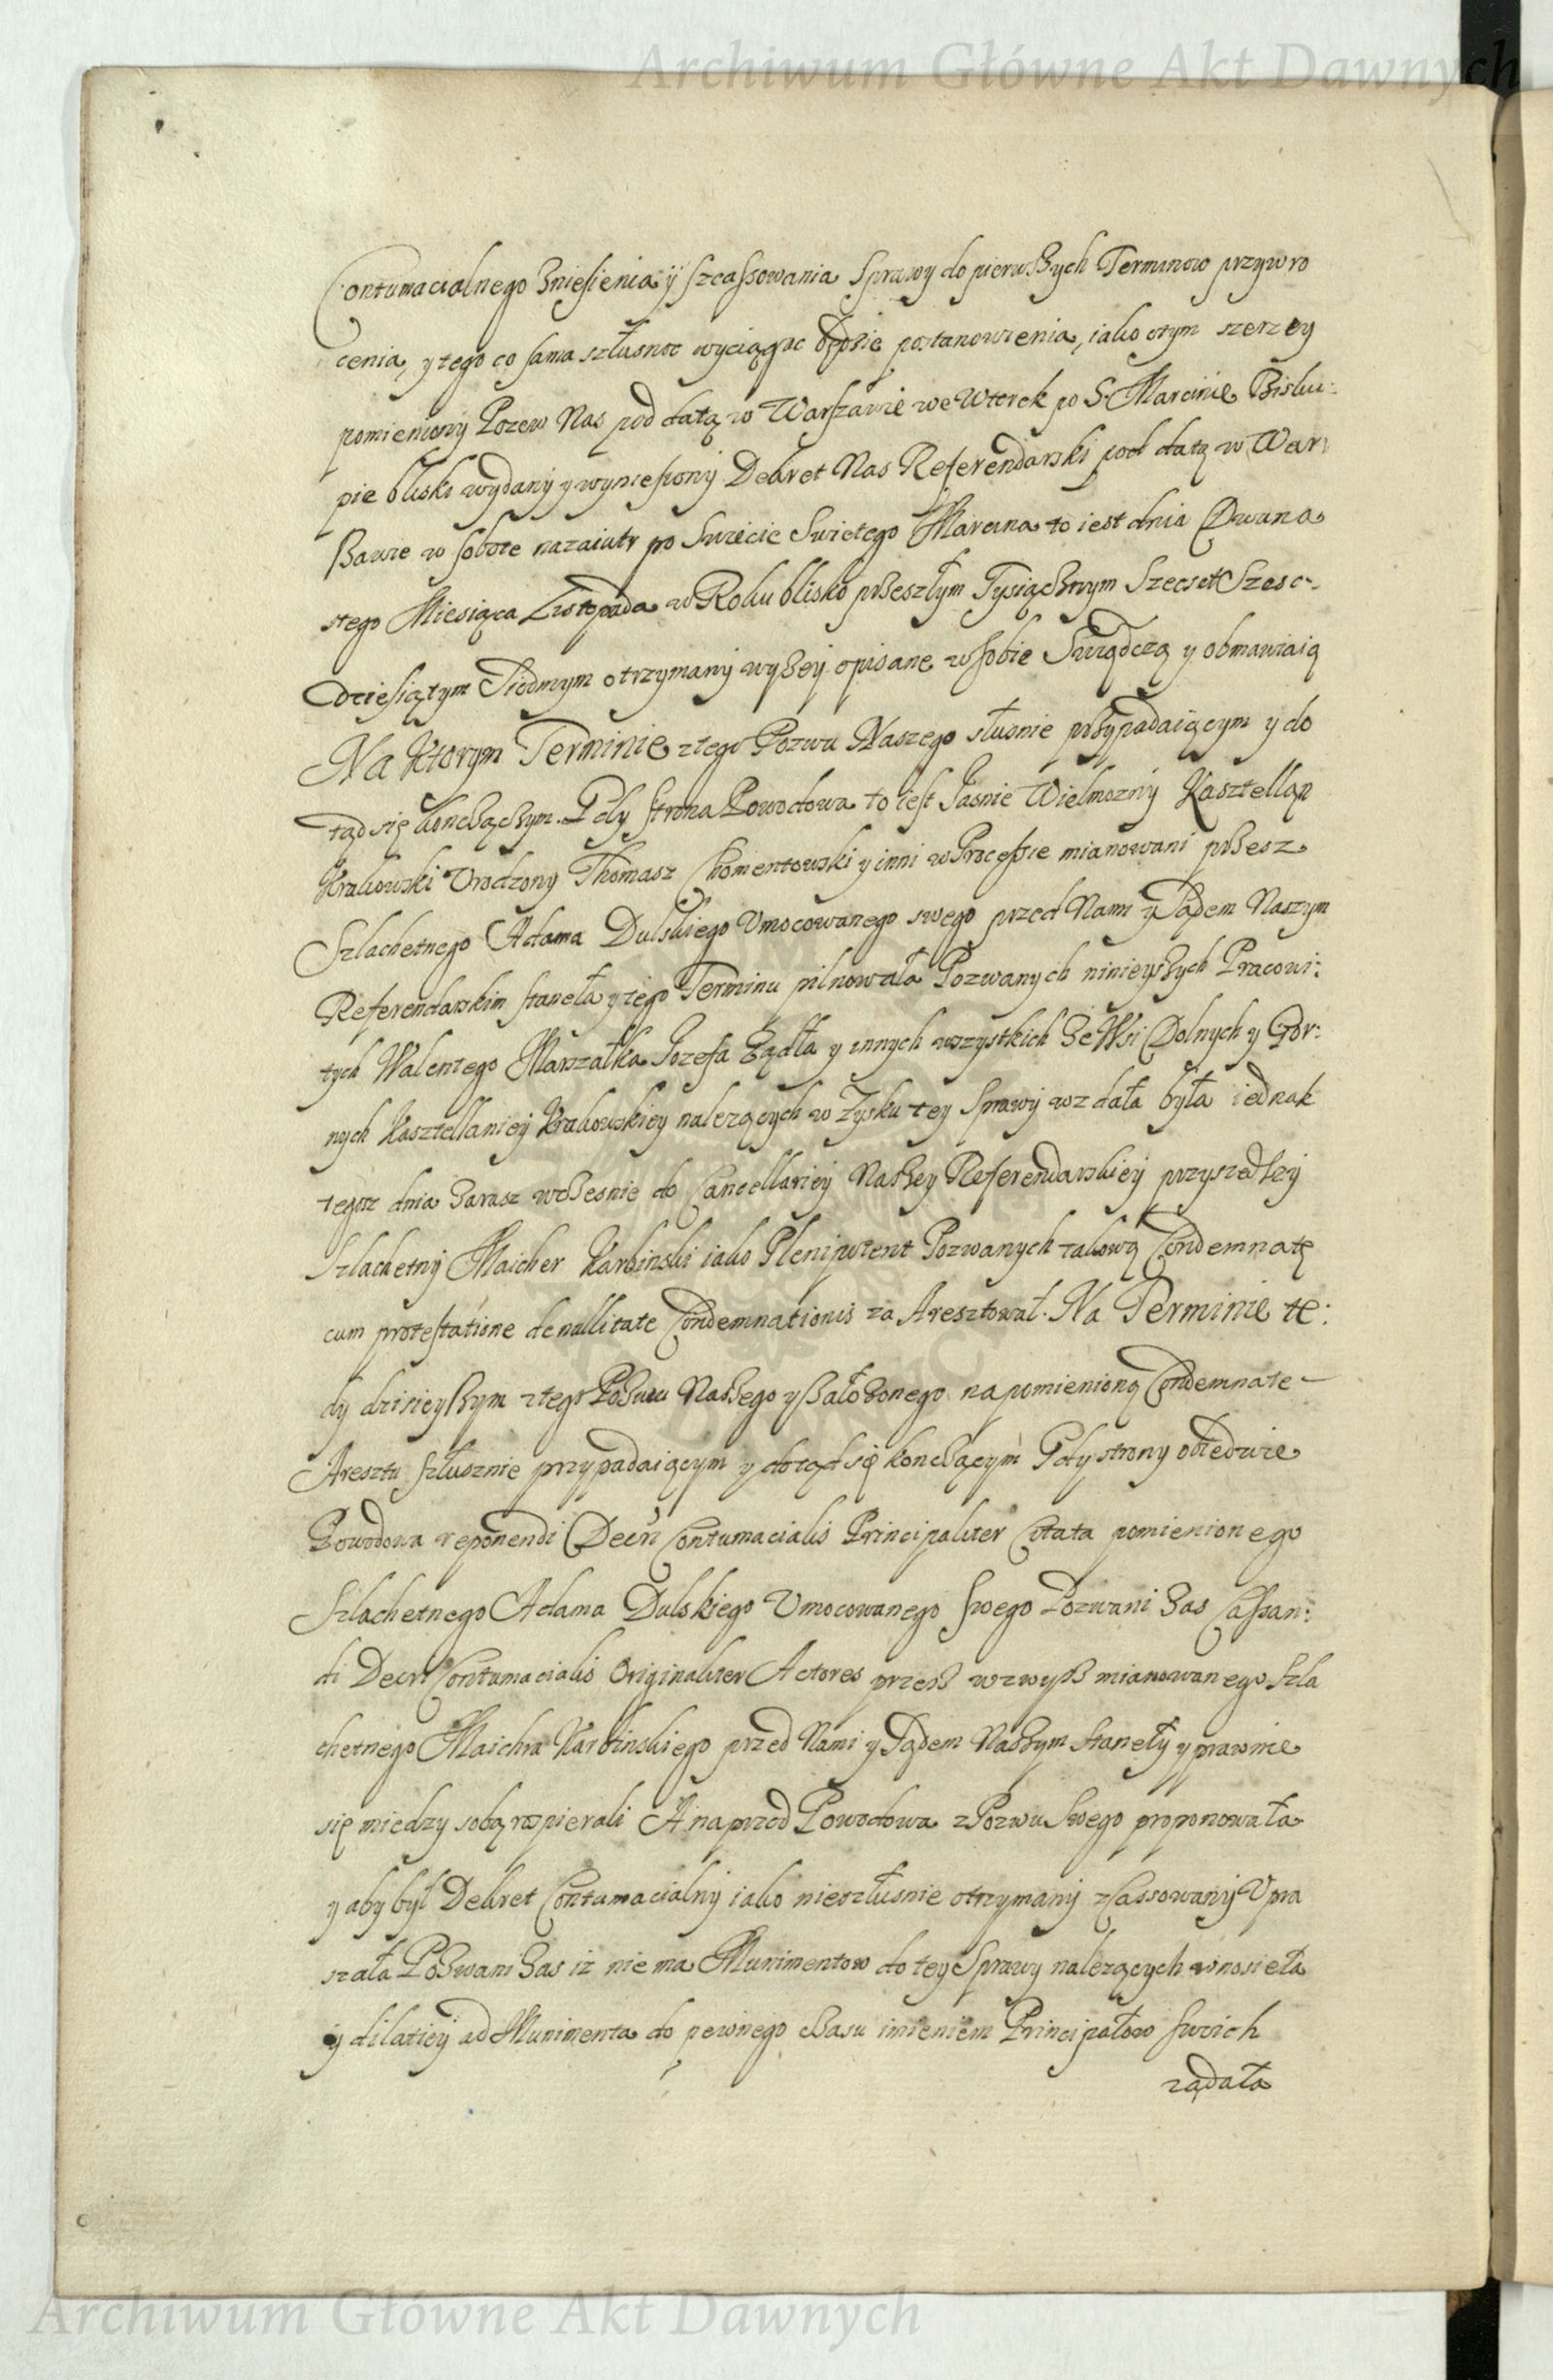 Archiwum Główne Akt Dawnych
Contumacialnego zniesienia ÿ szcassowania Sprawy do pierwszych Terminow przywro
cenia, y tego co sama szłusnoc wyciągac będzie postanowienia, iako otym szerzey
pomieniony Pozew Nas pod datą w Warszawie we Wtorek po S. Marcinie Bisku:
pie bliski wydany y wyniesiony Dekret Nas Referendarski pod datą w War
szawie w sobote nazaiutr po Swiecie Swietego Marcina to iest dnia Dwuna
stego Miesiąca Listopada w Roku blisko przeszłym Tysiącznym Szecset Szesc-
dziesiątym Siodmym otrzymany wyzey opisane wsobie Swiądczą y obmawiaią
Na Ktorym Terminie ztego Pozwu Naszego słusnie przypadaiącym y do
tąd się konczączym. Gdy strona Powodowa to iest Jasnie Wielmozny Kasztellan
Krakowski Urodzony Thomasz Chomentowski y inni w Processie mianowani przesz
Szlachetnego Adama Dulskiego Umocowanego swego przed Nami y Sądem Naszym
Referendarskim staneła y tego Terminu pilnowała Pozwanych ninieyszych Pracowi:
tych Walentego Marszałka Jozefa Ządła y innych wszystkich ze Wsi Dolnych y Gor:
nych Kasztellaniey Krakowskiey nalezących w Zysku tey Sprawy wzdała była iednak
tegosz dnia zarasz wczesnie do Cancellariey Naszey Referendarskiey przyszedszy
Szlachetny Maicher Karbinski iako Plenipotent Pozwanych takową Condemnatę
cum protestatione de nullitate Condemnationis za Aresztował. Na Terminie te:
dy dzisieyszym ztego Pozwu Naszego y załozonego na pomienioną Condemnate
Aresztu szłusznie przypadaiącym y dotąd się konczącym Gdy strony obiedwie
Powodowa reponendi Decri Contumacialis Principaliter Citata pomienionego
Szlachetnego Adama Dulskiego Umocowanego swego Pozwani zas Cassan:
di Decri Contumacialis Originaliter Actores przesz wzwysz mianowanego Szla
chetnego Maichra Karbinskiego przed Nami y Sądem Naszym staneły y prawnie
się miedzy sobą rozpierali A naprzod Powodowa z Pozwu Swego proponowała
y aby był Dekret Contumacialny iako nieszłusnie otrzymany zCassowany Upra
szała Pozwani zas iz nie ma Munimentow do tey Sprawy nalezących wnosieła
y dilatiey ad Munimenta do pewnego czasu imieniem Principałow swoich
ządała
Archiwum Główne Akt Dawnych